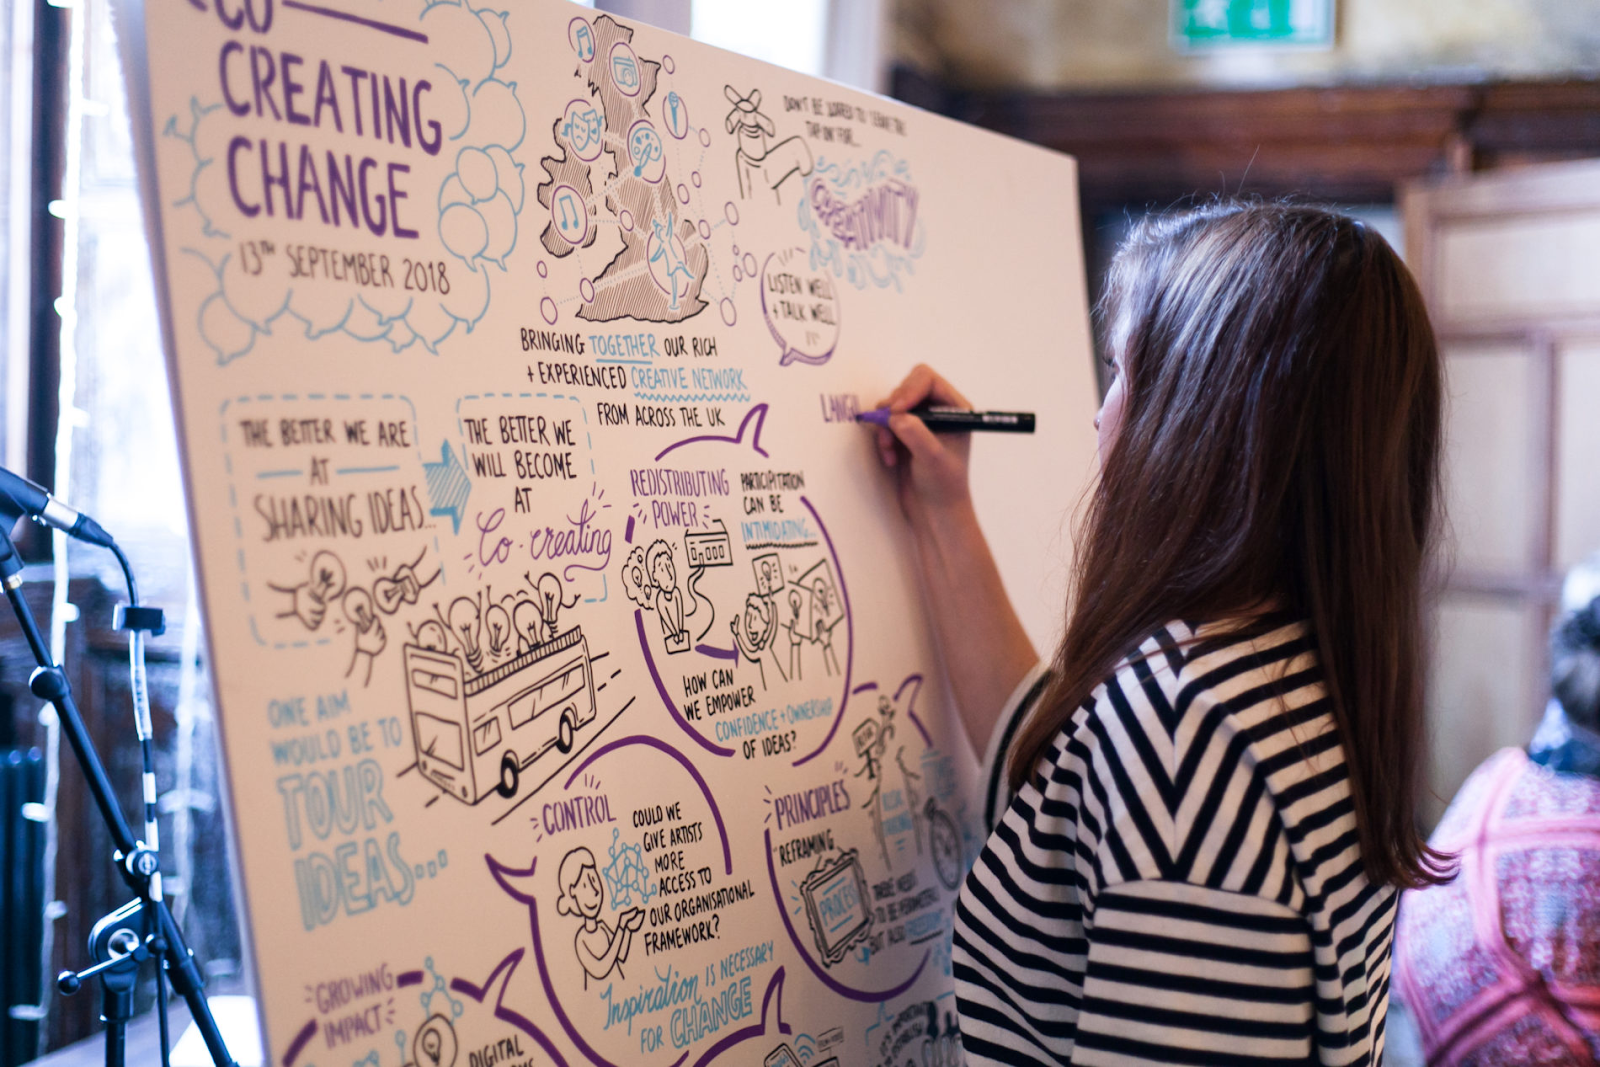 CO
CREATING
CHANGE
13TH SEPTEMBER 2018
BRINGING TOGETHER OUR RICH
+ EXPERIENCED CREATIVE NETWORK
FROM ACROSS THE UK
DON'T BE SCARED TO LEAVE THE
TAP ON FOR...
CREATIVITY
LISTEN WELL
+ TALK WELL
LANGU
THE BETTER WE ARE
AT
SHARING IDEAS...
THE BETTER WE
WILL BECOME
AT
Co-creating
ONE AIM
WOULD BE TO
TOUR
IDEAS...
REDISTRIBUTING
POWER
PARTICIPATION
CAN BE
INTIMIDATING...
HOW CAN
WE EMPOWER
CONFIDENCE + OWNERSHIP
OF IDEAS?
CONTROL
COULD WE
GIVE ARTISTS
MORE
ACCESS TO
OUR ORGANISATIONAL
FRAMEWORK?
Inspiration IS NECESSARY
FOR CHANGE
PRINCIPLES
REFRAMING
PROCESS
BUT ALSO
GROWING
IMPACT
DIGITAL